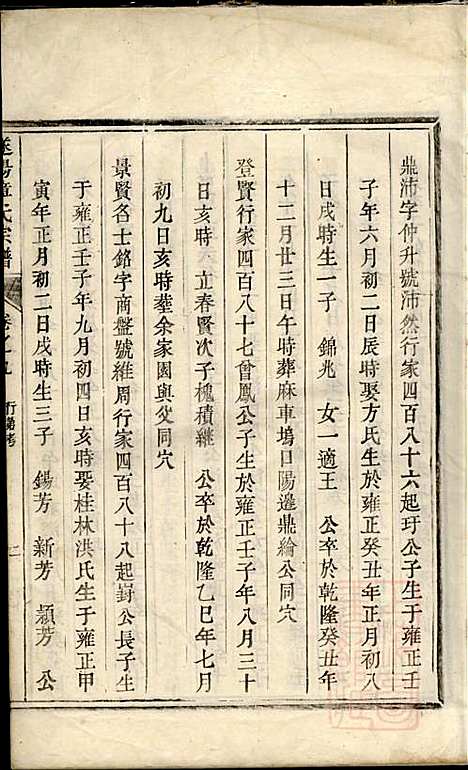 鼎沛字仲升號沛然行家四百八十六起玗公子生于雍正壬
子年六月初二日辰時娶方氏生於雍正癸丑年正月初八
日戌時生一子 錦兆 女一適王 公卒於乾隆癸丑年
十二月廿三日午時葬麻車塢口陽邉鼎綸公同穴
登賢行家四百八十七曾鳳公子生於雍正壬子年八月三十
日亥時 立春賢次子槐積継 公卒於乾隆乙巳年七月
初九日亥時塟余家園與父同穴
景賢名士銘字商盤號維周行家四百八十八起封公長子生
于雍正壬子年九月初四日亥時娶桂林洪氏生于雍正甲
寅年正月初二日戌時生三子 錫芳 新芳 頴芳 公
氏宗譜 卷之九 行 三